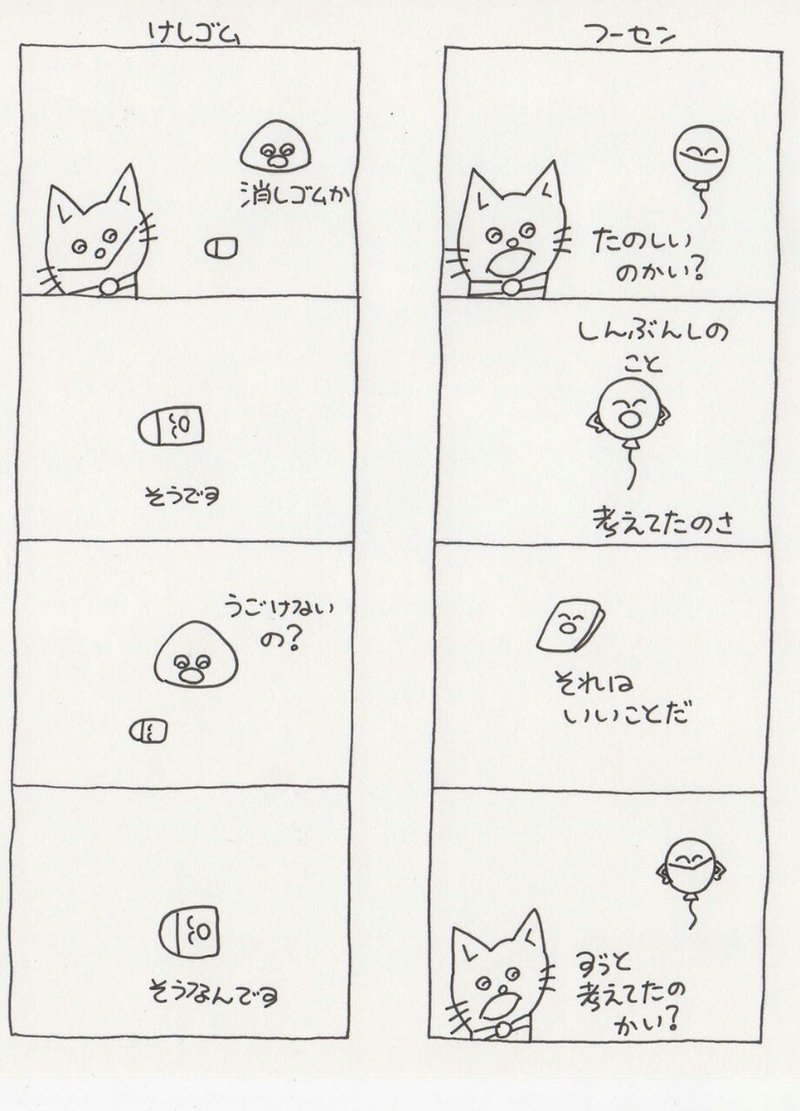 けしゴム
消しゴムか
そうです
うごけない
の?
そうなんです
フーセン
たのしい
のかい?
しんぶんしの
こと
考えてたのさ
それは
いいことだ
ずっと
考えてたの
かい?